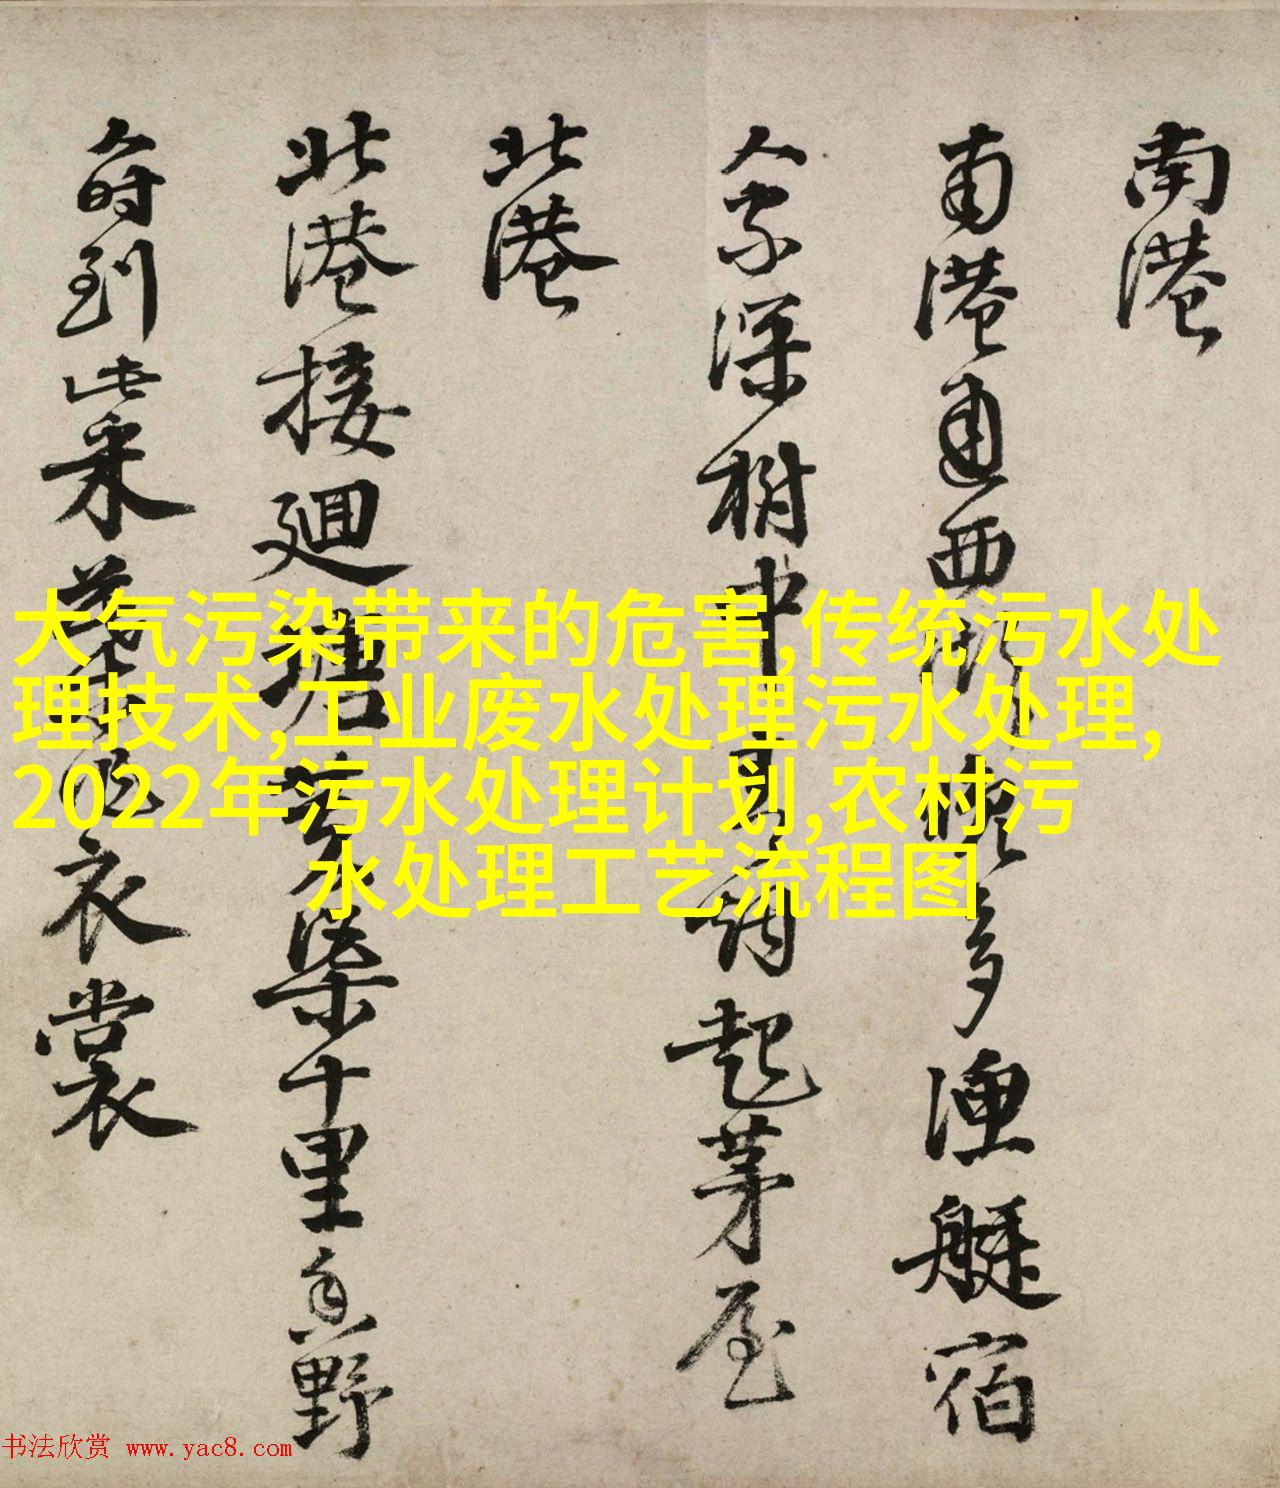 南港
南港通西湖晚多漁艇宿
人家深樹中鳥窮起茅屋
北港
北港接迴塘芰渠十里香野
人時到此采葉為衣裳
大气污染带来的危害,传统污水处
理技术,工业废水处理污水处理,
2022年污水处理计划,农村污
水处理工艺流程图
书法欣赏 www.yac8.com